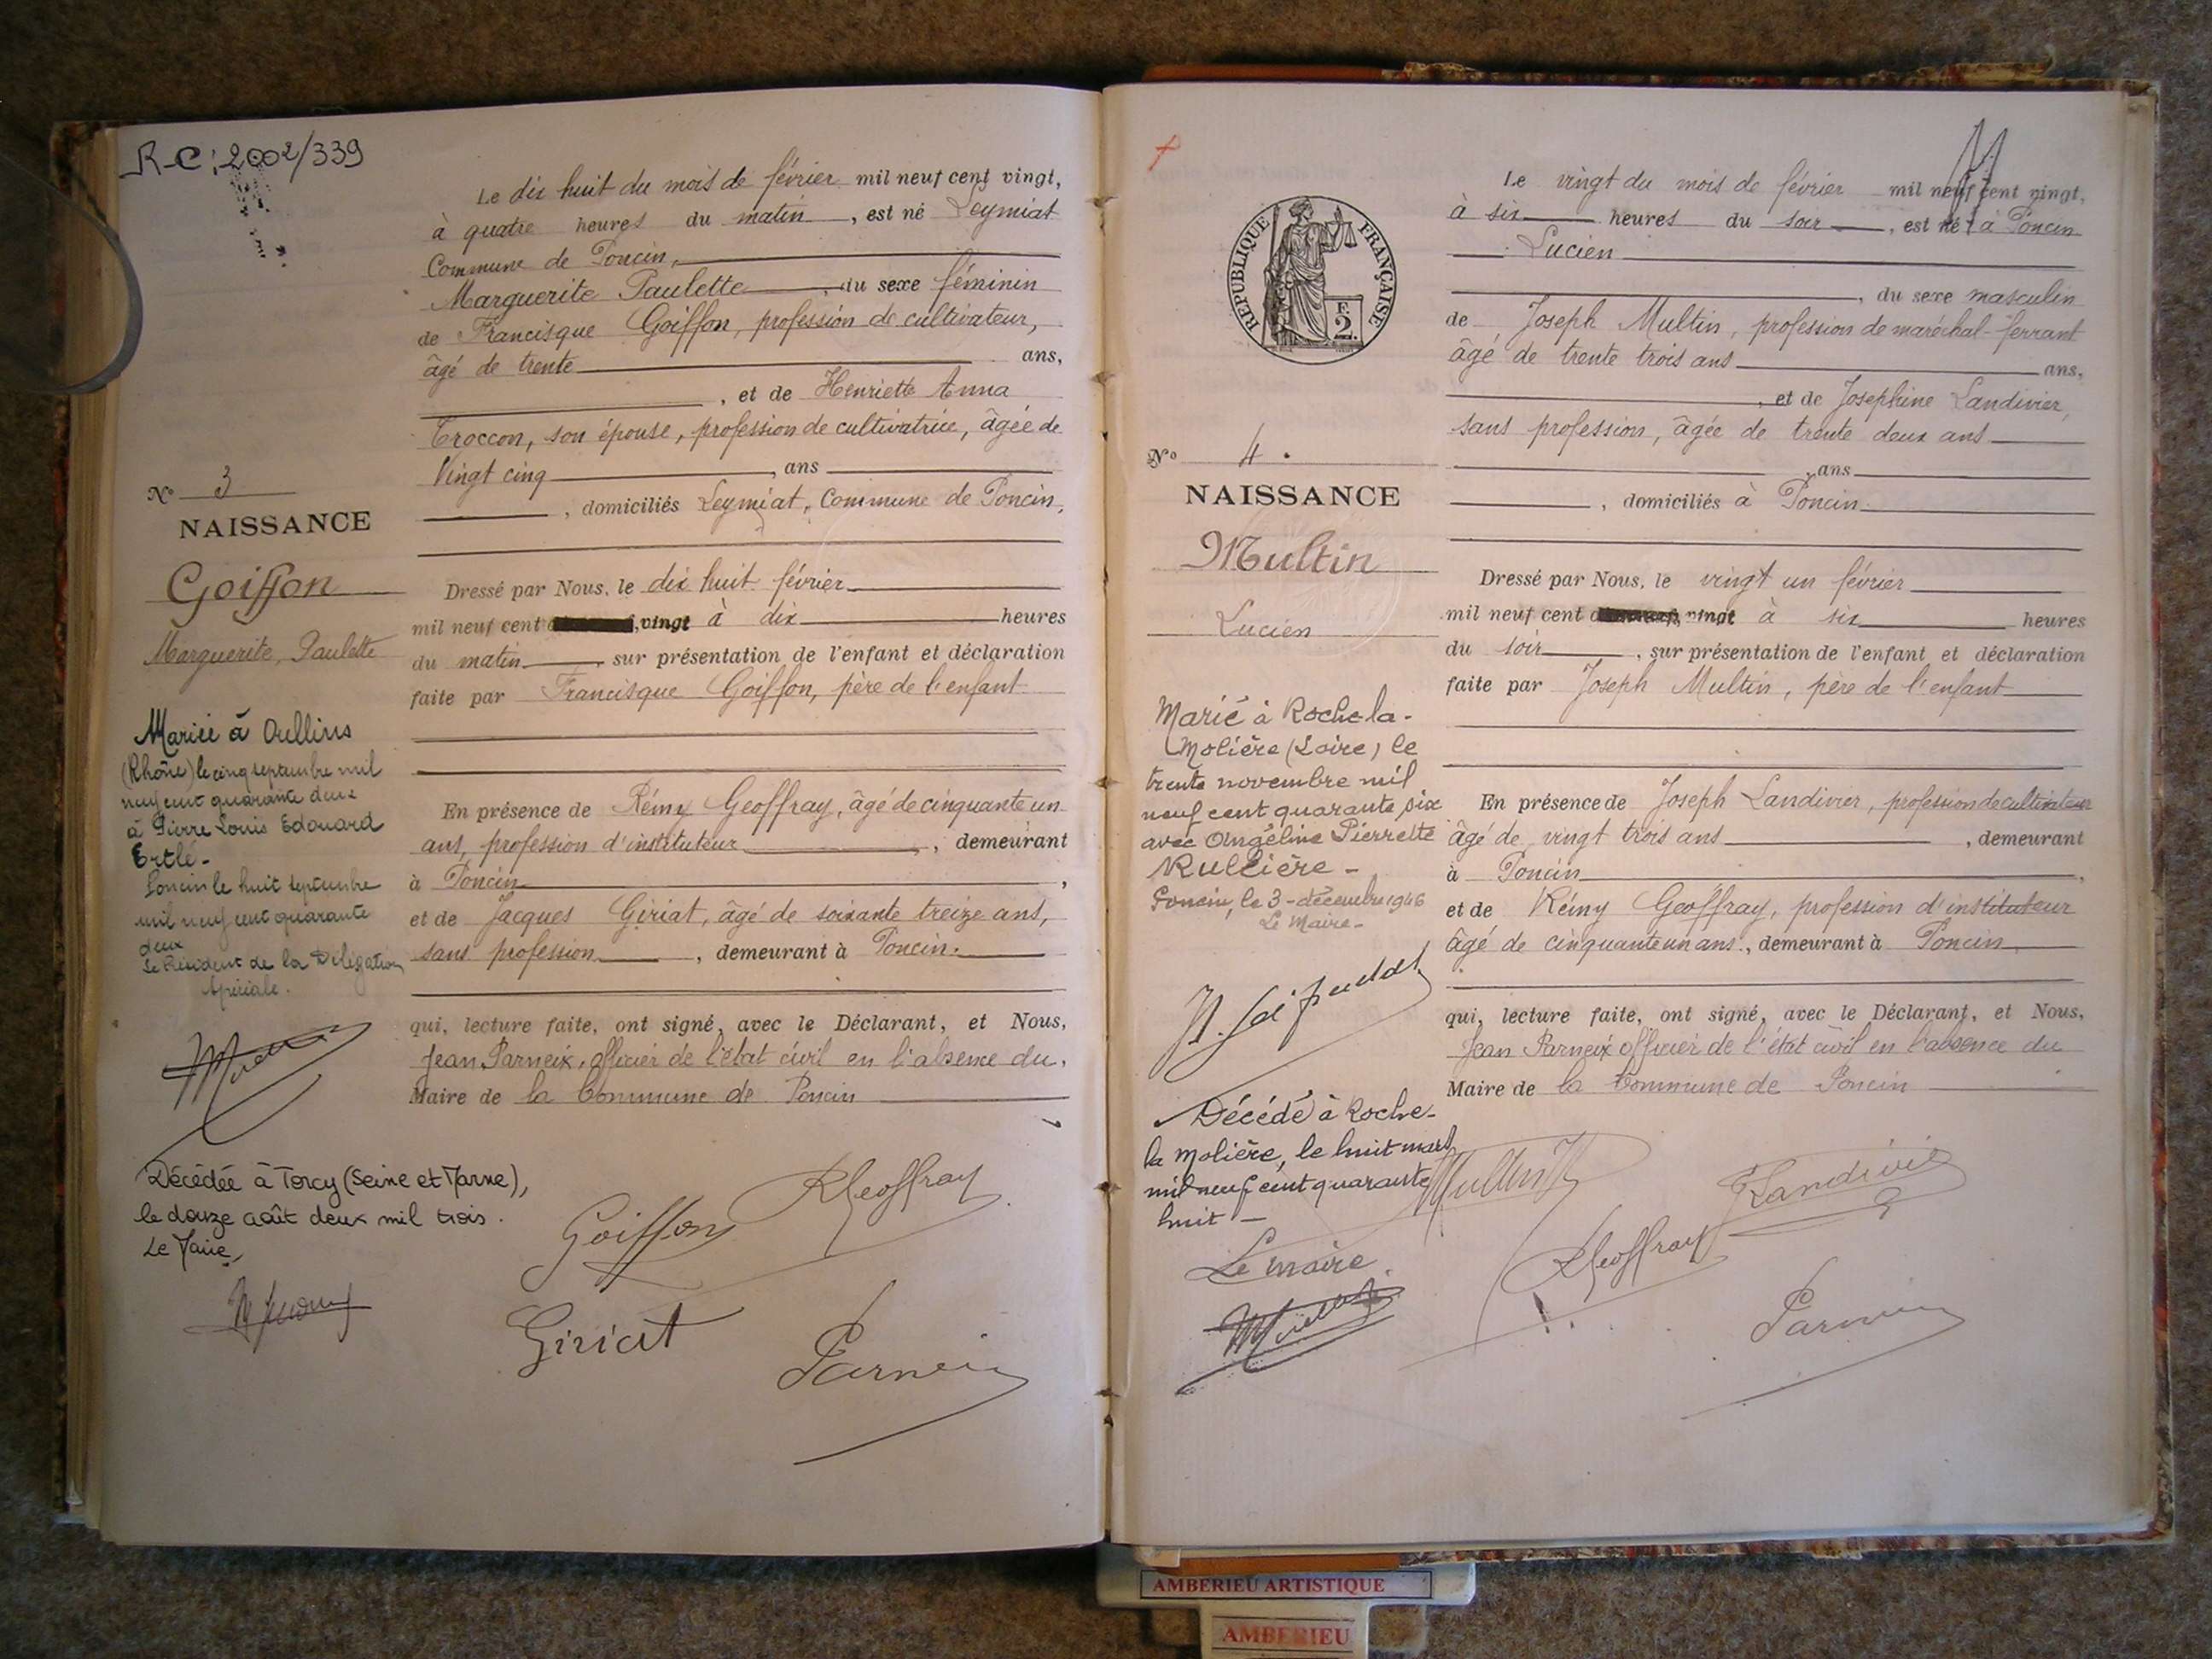 R-C: 2002/339
Le dix huit du mois de février mil neuf cent vingt,
à quatre heures du matin, est né Leymiat
Commune de Poncin,
Marguerite Paulette, du sexe féminin
de Francisque Goiffon, profession de cultivateur,
âgé de trente ans,
, et de Henriette Anna
Croccon, son épouse, profession de cultivatrice, âgée de
Vingt cinq, ans
, domiciliés Leymiat, Commune de Poncin,
N° 3
NAISSANCE
Goiffon
Marguerite, Paulette
Dressé par Nous, le dix huit février
mil neuf cent vingt à dix heures
du matin sur présentation de l'enfant et déclaration
faite par Francisque Goiffon, père de l'enfant
En présence de Rémy Geoffray, âgé de cinquante un
ans, profession d'instituteur, demeurant
à Poncin,
et de Jacques Giriat, âgé de soixante treize ans,
sans profession, demeurant à Poncin.
qui, lecture faite, ont signé, avec le Déclarant, et Nous,
Jean Parneix, officier de l'état civil en l'absence du,
Maire de la Commune de Poncin
Mariée à Oullins
(Rhône) le cinq septembre mil
neuf cent quarante deux
à Pierre Louis Edouard
Ertlé-
Poncin le huit septembre
mil neuf cent quarante
deux
Le Président de la Délégation
Spéciale.
Décédée à Torcy (Seine et Marne),
le douze août deux mil trois.
Le Maire,
Goiffon
RGeoffray
Giriat
Parneix
RÉPUBLIQUE FRANÇAISE
F.
2.
Le vingt du mois de février mil neuf cent vingt,
à six heures du soir, est né à Poncin
Lucien
, du sexe masculin
de Joseph Multin, profession de maréchal-ferrant
âgé de trente trois ans ans,
, et de Josephine Landivier,
sans profession, âgée de trente deux ans
, ans
, domiciliés à Poncin
N° 4.
NAISSANCE
Multin
Lucien
Dressé par Nous, le vingt un février
mil neuf cent vingt à six heures
du soir, sur présentation de l'enfant et déclaration
faite par Joseph Multin, père de l'enfant
En présence de Joseph Landivier, profession de cultivateur
âgé de vingt trois ans, demeurant
à Poncin,
et de Rémy Geoffray, profession d'instituteur
âgé de cinquante un ans, demeurant à Poncin
qui, lecture faite, ont signé, avec le Déclarant, et Nous,
Jean Parneix officier de l'état civil en l'absence du
Maire de la Commune de Poncin
Marié à Roche-la-
Molière (Loire) le
trente novembre mil
neuf cent quarante six
avec Angéline Pierrette
Rullière -
Poncin, le 3 - décembre 1946
Le Maire -
Décédé à Roche-
la Molière, le huit mars
mil neuf cent quarante
huit -
Le maire
Multin J
JLandivier
RGeoffray
Parneix
AMBERIEU ARTISTIQUE
AMBERIEU